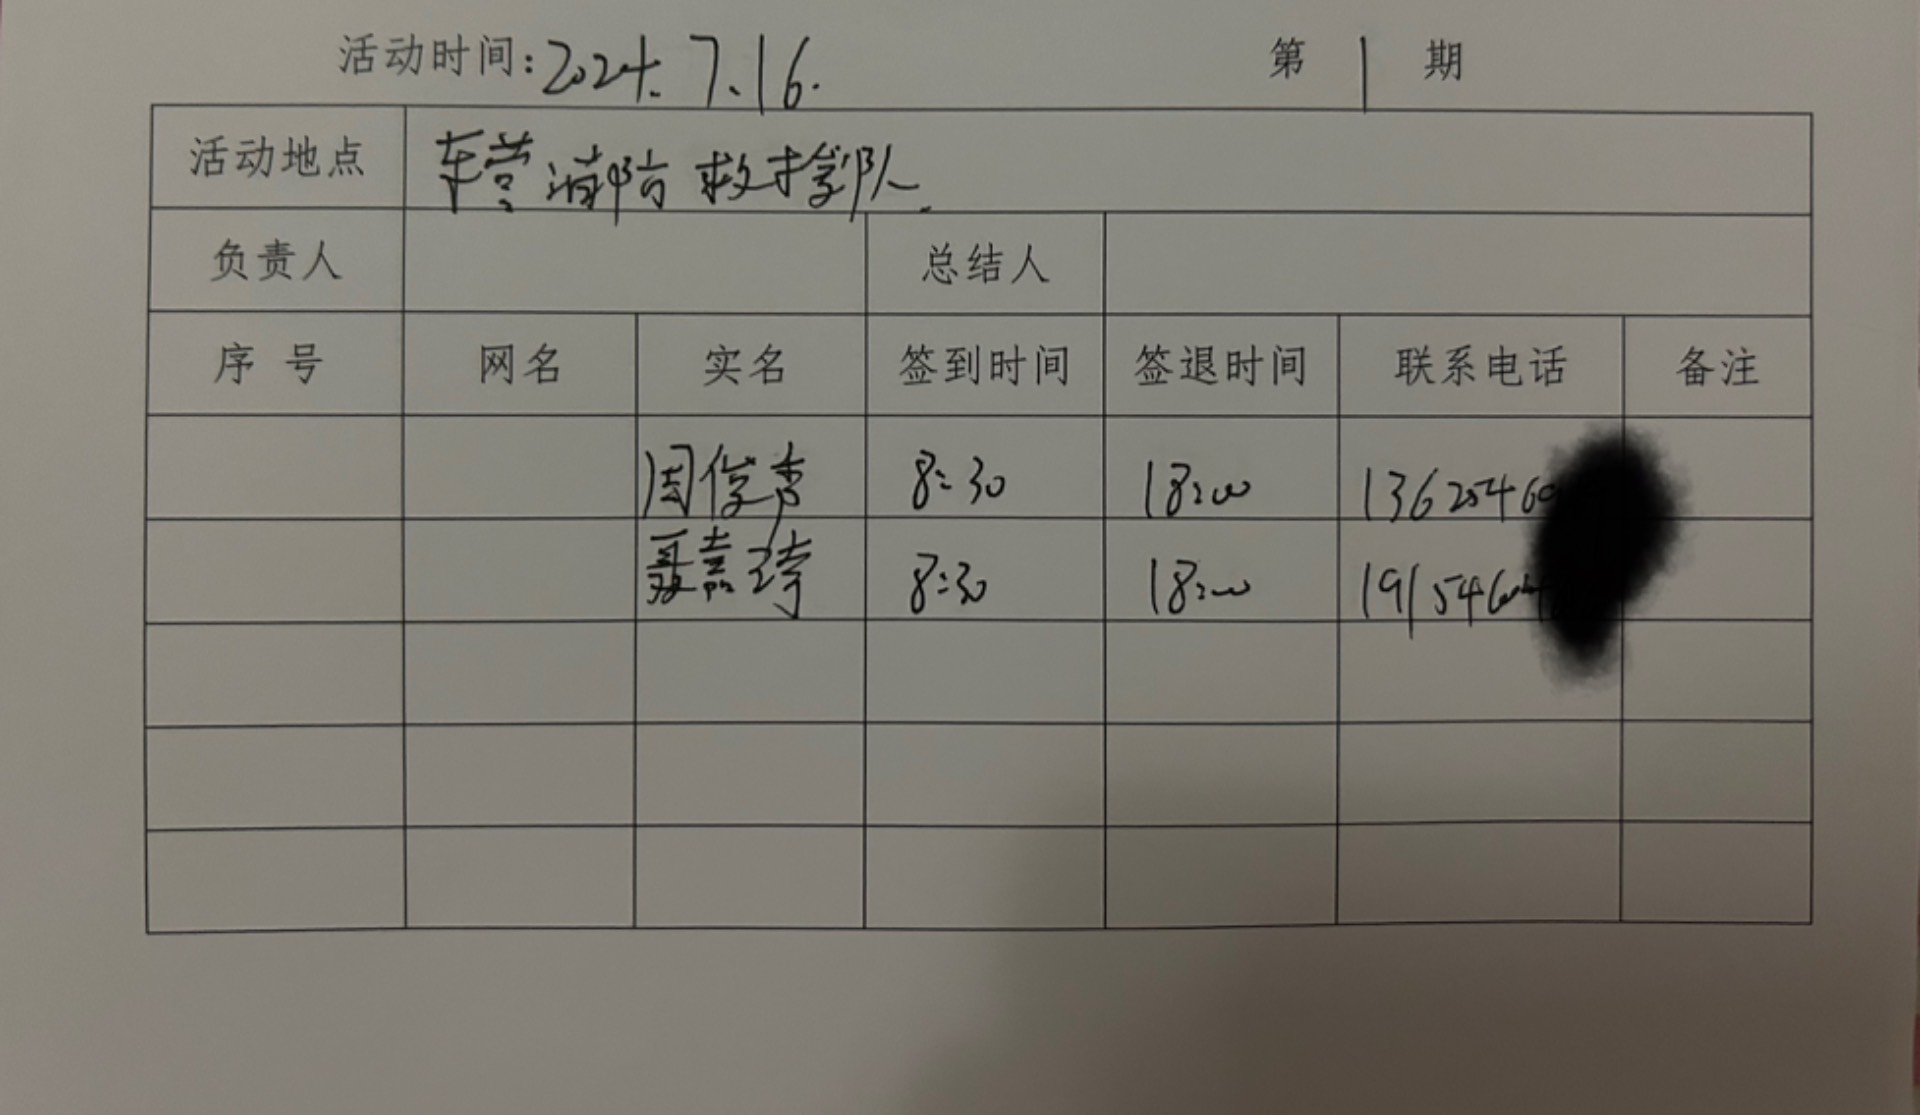 活动时间:2024.7.16. 第 1 期
活动地点 车营消防救援队.
负责人 总结人
序号 网名 实名 签到时间 签退时间 联系电话 备注
周俊 8:30 18:00 1362546
聂嘉琦 8:30 18:00 19154604